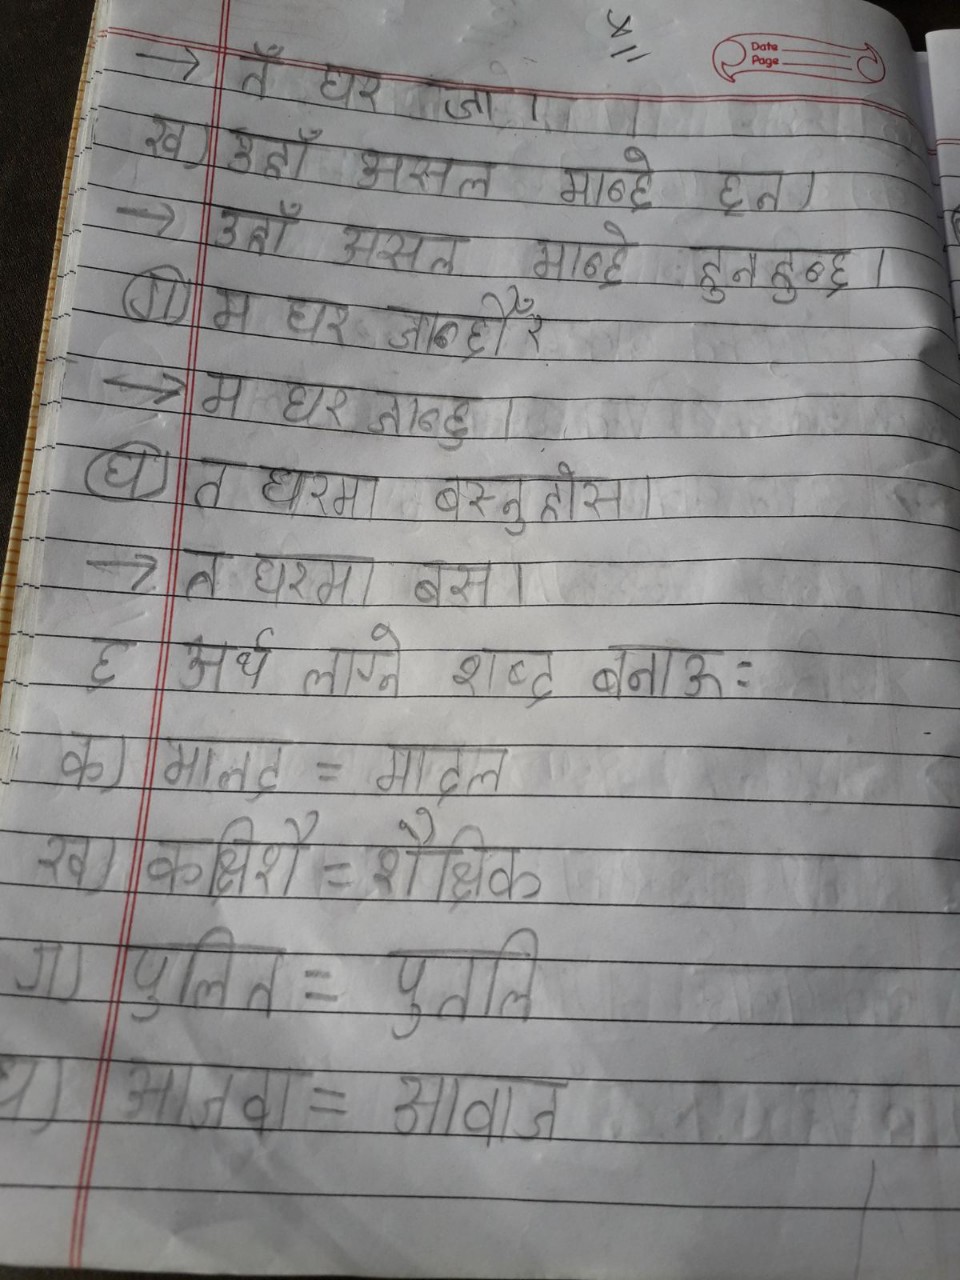 Date
Page
→ तँ घर जा ।
ख) उहाँ असल मान्छे छन ।
→ उहाँ असल मान्छे हुनहुन्छ ।
ग) म घर जान्छौँर
→ म घर जान्छु ।
घ) त घरमा बस्नुहोस ।
→ त घरमा बस ।
६ अर्थ लाग्ने शब्द बनाऊ :
क) मालद = मादल
ख) कक्षिशै = शैक्षिक
ग) पुलित = पुतलि
घ) आजवा = आवाज